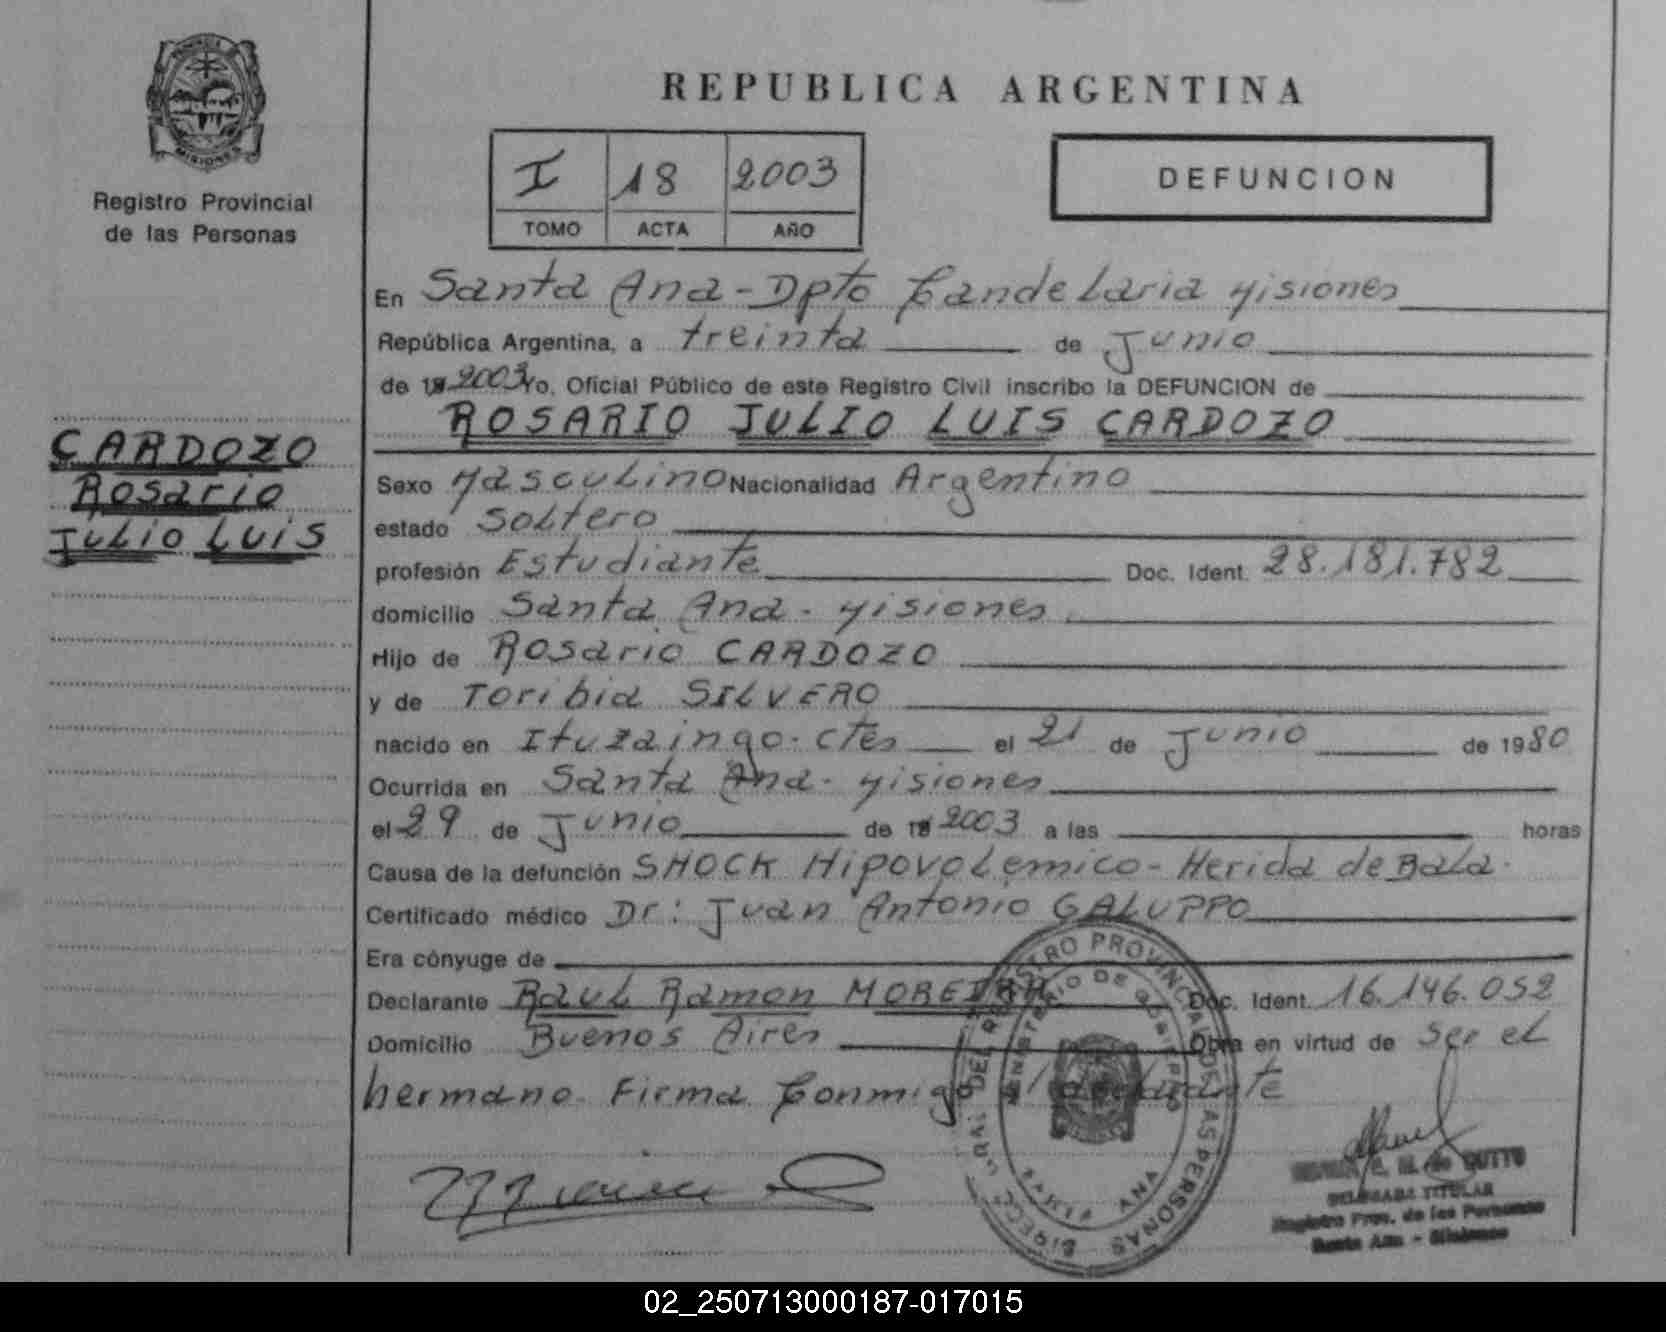 PROVINCIA DE
MISIONES
Registro Provincial
de las Personas
REPUBLICA ARGENTINA
I 18 2003
TOMO ACTA AÑO
DEFUNCION
En Santa Ana - Dpto Candelaria Misiones
República Argentina, a treinta de Junio
de 19 2003 Yo, Oficial Público de este Registro Civil inscribo la DEFUNCION de
ROSARIO JULIO LUIS CARDOZO
CARDOZO
Rosario
Julio Luis
Sexo Masculino Nacionalidad Argentino
estado Soltero
profesión Estudiante Doc. Ident. 28.181.782
domicilio Santa Ana - Misiones
Hijo de Rosario CARDOZO
y de Toribia SILVERO
nacido en Ituzaingo - Ctes el 21 de Junio de 1980
Ocurrida en Santa Ana - Misiones
el 29 de Junio de 19 2003 a las horas
Causa de la defunción SHOCK Hipovolemico - Herida de Bala.
Certificado médico Dr: Juan Antonio GALUPPO
Era cónyuge de
Declarante Raul Ramon MOREIRA Doc. Ident. 16.146.052
Domicilio Buenos Aires Obra en virtud de ser el
hermano. Firma Conmigo
REGISTRO PROVINCIAL DE LAS PERSONAS
MINISTERIO DE GOBIERNO
SANTA ANA
de DUTTO
DELEGADA TITULAR
Registro Prov. de las Personas
Santa Ana - Misiones
02_250713000187-017015